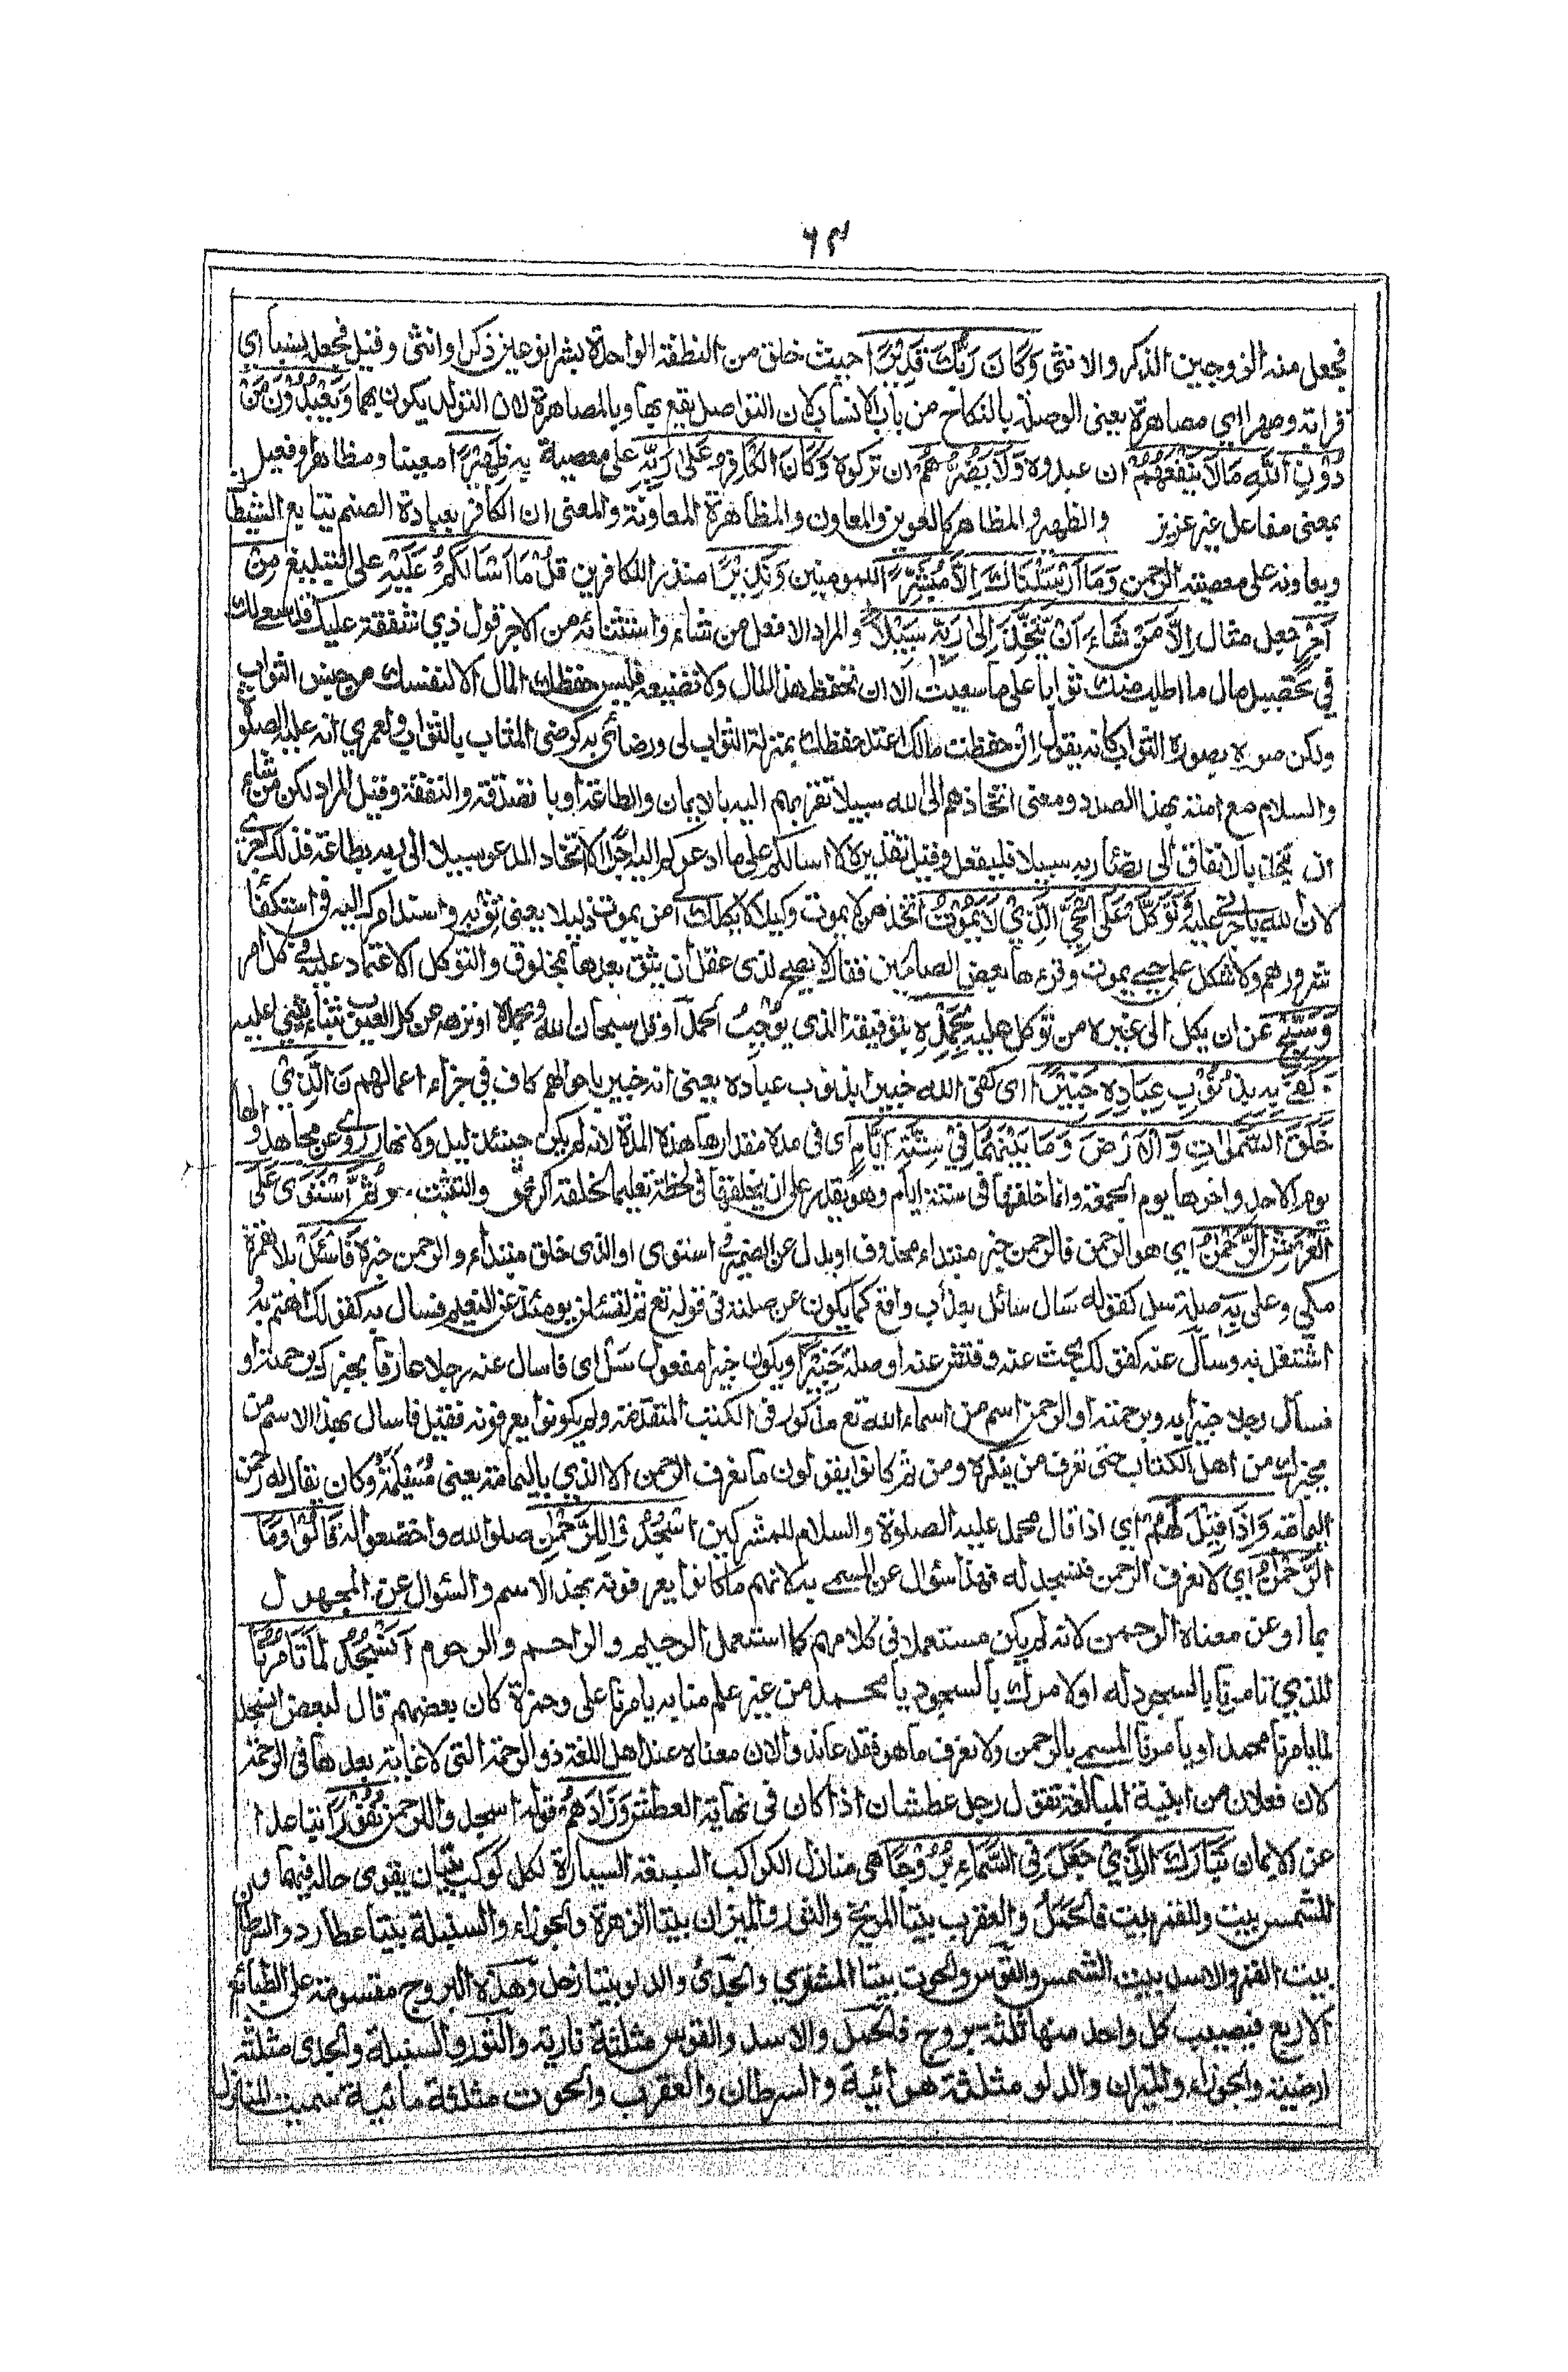 ٦٩
فجعل منه الزوجين الذكر والانثى وَكَانَ رَبُّكَ قَدِيْرًا حيث خلق من النطفة الواحدة بشرا نوعين ذكرا وانثى وقيل فجعله نسبا اى
قرابة وصهرا اى مصاهرة يعنى الوصلة بالنكاح من باب الانساب لان التواصل يقع بها وبالمصاهرة لان التوالد يكون بهما وَيَعْبُدُوْنَ مِنْ
دُوْنِ اللّٰهِ مَالَا يَنْفَعُهُمْ ان عبدوه وَلَا يَضُرُّهُمْ ان تركوه وَكَانَ الْكَافِرُ عَلٰى رَبِّهٖ على معصية ربه ظَهِيْرًا معينا ومظاهرا وفعيل
بمعنى مفاعل غير عزيز والظهير والمظاهر كالعوين والمعاون والمظاهرة المعاونة والمعنى ان الكافر بعبادة الصنم يتابع الشيطان
ويعاونه على معصية الرحمن وَمَا اَرْسَلْنَاكَ اِلَّا مُبَشِّرًا للمومنين وَنَذِيْرًا منذرا للكافرين قُلْ مَا اَسْاَلُكُمْ عَلَيْهِ على التبليغ مِنْ
اَجْرٍ جعل مثال اِلَّا مَنْ شَاءَ اَنْ يَتَّخِذَ اِلٰى رَبِّهٖ سَبِيْلًا والمراد الا فعل من شاء واستثنائه من الاجر قول ذي شفقة عليك قد سعى لك
في تحصيل مال ما اطلب منك ثوابا على ما سعيت الا ان تحفظ هذا المال ولا تضيعه فليس حفظك المال الا لنفسك من جنس الثواب
ولكن صوره بصورة الثواب كانه يقول ان حفظت مالك اعتد حفظك بمنزلة الثواب لى ورضائى به كرضى المثاب بالثواب ولعمري انه عليه الصلوة
والسلام مع امته بهذا الصدد ومعنى اتخاذهم الى الله سبيلا تقربهم اليه بالايمان والطاعة او بالصدقة والنفقة وقيل المراد لكن من شاء
ان يتخذ بالانفاق الى رضاء ربه سبيلا فليفعل وقيل تقديره لا اسالكم على ما ادعوكم اليه اجرا الا اتخاذ المدعو سبيلا الى ربه بطاعته فذلك اجرى
لان الله ياجرنى عليه وَتَوَكَّلْ عَلَى الْحَيِّ الَّذِيْ لَا يَمُوْتُ اتخذ من لا يموت وكيلا لا يكلك الى من يموت ذليلا يعنى ثق به واستند امرك اليه في استكفاء
شرورهم ولا تتكل على حي يموت وقرءها بعض الصالحين فقال لا يصح لذى عقل ان يثق بعدها بمخلوق والتوكل الاعتماد عليه في كل امر
وَسَبِّحْ عن ان يكل الى غيره من توكل عليه بِحَمْدِهٖ بتوفيقه الذى يوجب الحمد او قل سبحان الله وبحمده او نزهه عن كل العيوب بثناء يثنى عليه
وَكَفٰى بِهٖ بِذُنُوْبِ عِبَادِهٖ خَبِيْرًا اى كفى الله خبيرا بذنوب عباده يعنى انه خبير باحوالهم كاف في جزاء اعمالهم نَ الَّذِيْ
خَلَقَ السَّمٰوٰتِ وَالْاَرْضَ وَمَا بَيْنَهُمَا فِيْ سِتَّةِ اَيَّامٍ اى في مدة مقدارها هذه المدة لانه لم يكن حينئذ ليل ولا نهار روى عن مجاهد اولها
يوم الاحد واخرها يوم الجمعة وانما خلقها فى ستة ايام وهو يقدر على ان يخلقها فى لحظة تعليما لخلقه الرفق والتثبت ثُمَّ اسْتَوٰى عَلَى
الْعَرْشِ الرَّحْمٰنُ اي هو الرحمن فالرحمن خبر مبتداء محذوف او بدل عن الضمير فى استوى او الذى خلق مبتداء والرحمن خبره فَاسْئَلْ بلا همزة
مكي وعلى بِهٖ صلة سل كقوله سال سائل بعذاب واقع كما يكون عن صلته فى قوله تع ثم لتسئلن يومئذ عن النعيم فسال به كقولك اهتم به
اشتغل به وسال عنه كقولك بحث عنه وفتش عنه او صلة خَبِيْرًا ويكون خبيرا مفعول سَلْ اى فاسال عنه رجلا عارفا يخبرك برحمته او
فسال رجلا خبيرا به وبرحمته او الرحمن اسم من اسماء الله تع مذكور فى الكتب المتقدمة ولم يكونوا يعرفونه فقيل فاسال بهذا الاسم من
يخبرك من اهل الكتاب حتى تعرف من ينكره ومن ثم كانوا يقولون ما نعرف الرحمن الا الذي باليمامة يعنى مُسَيْلَمَةُ وكان يقال له رحمن
اليمامة وَاِذَا قِيْلَ لَهُمُ اي اذا قال محمد عليه الصلوة والسلام للمشركين اسْجُدُوْا لِلرَّحْمٰنِ صلوا لله واخضعوا له قَالُوْا وَمَا
الرَّحْمٰنُ اي لا نعرف الرحمن فنسجد له فهذا سؤال عن المسمى به لانهم ما كانوا يعرفونه بهذا الاسم والسؤال عن المجهول
بما او عن معناه الرحمن لانه لم يكن مستعملا فى كلامهم كما استعمل الرحيم والراحم والرحوم اَنَسْجُدُ لِمَا تَامُرُنَا
للذي تامرنا بالسجود له او لامرك بالسجود يا محمد من غير علم منا به يامرنا على وحمزة كان بعضهم قال لبعض انسجد
لما يامرنا محمد او يامرنا المسمى بالرحمن ولا نعرف ما هو فقد عاندوا لان معناه عند اهل اللغة ذو الرحمة التى لا غاية بعدها فى الرحمة
لان فعلان من ابنية المبالغة تقول رجل عطشان اذا كان في نهاية العطش وَزَادَهُمْ قوله اسجدوا للرحمن نُفُوْرًا تباعدا
عن الايمان تَبَارَكَ الَّذِيْ جَعَلَ فِى السَّمَاءِ بُرُوْجًا هى منازل الكواكب السبعة السيارة لكل كوكب بيتان يقوى حاله فيهما ومن
للشمس بيت وللقمر بيت فالحمل والعقرب بيتا المريخ والثور والميزان بيتا الزهرة والجوزاء والسنبلة بيتا عطارد والسرطان
بيت القمر والاسد بيت الشمس والقوس والحوت بيتا المشترى والجدى والدلو بيتا زحل وهذه البروج مقسومة على الطبائع
الاربع فيصيب كل واحد منها ثلثة بروج فالحمل والاسد والقوس مثلثة نارية والثور والسنبلة والجدى مثلثة
ارضية والجوزاء والميزان والدلو مثلثة هوائية والسرطان والعقرب والحوت مثلثة مائية سميت المنازل